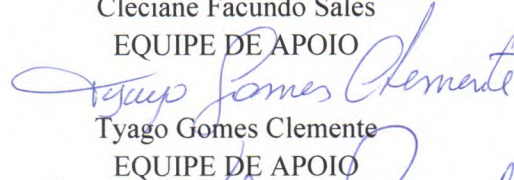 Cleciane Facundo Sales
EQUIPE DE APOIO
Tyago Gomes Clemente
Tyago Gomes Clemente
EQUIPE DE APOIO